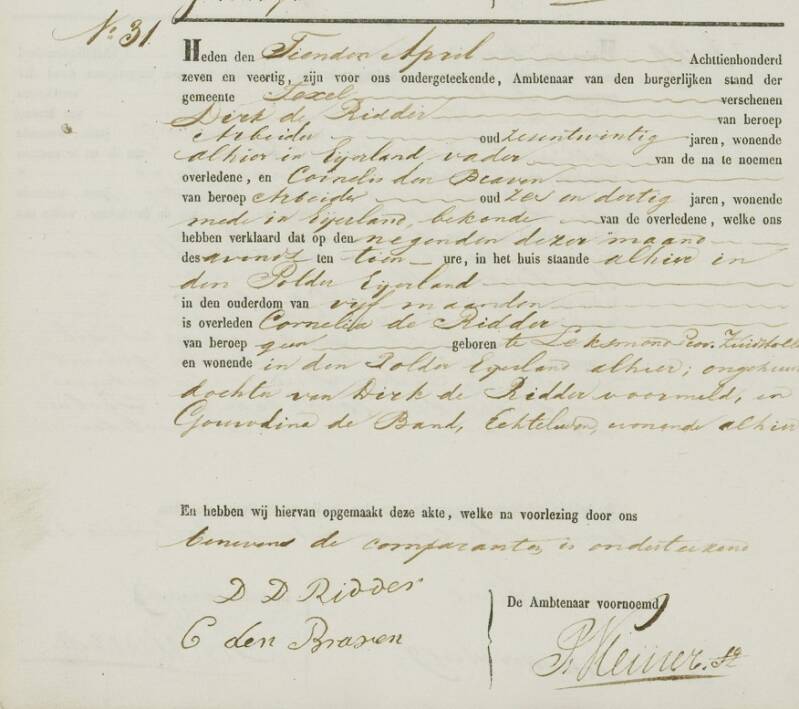 No 31
Heden den Tienden April Achttienhonderd
zeven en veertig, zijn voor ons ondergeteekende, Ambtenaar van den burgerlijken stand der
gemeente Texel verschenen
Dirk de Ridder van beroep
Arbeider oud zesentwintig jaren, wonende
alhier in Eijerland vader van de na te noemen
overledene, en Cornelis den Braven
van beroep Arbeider oud zes en dertig jaren, wonende
mede in Eijerland, bekende van de overledene, welke ons
hebben verklaard dat op den negenden dezer maand
des avonds ten tien ure, in het huis staande alhier in
den Polder Eijerland
in den ouderdom van vijf maanden
is overleden Cornelia de Ridder
van beroep geen geboren te Leksmond Prov. Zuidholl
en wonende in den Polder Eijerland alhier; ongehuwd
dochter van Dirk de Ridder voormeld, en
de Band, Echtelieden, wonende alhier
En hebben wij hiervan opgemaakt deze akte, welke na voorlezing door ons
benevens de comparanten is onderteekend
D D Ridder
C den Braven
De Ambtenaar voornoemd,